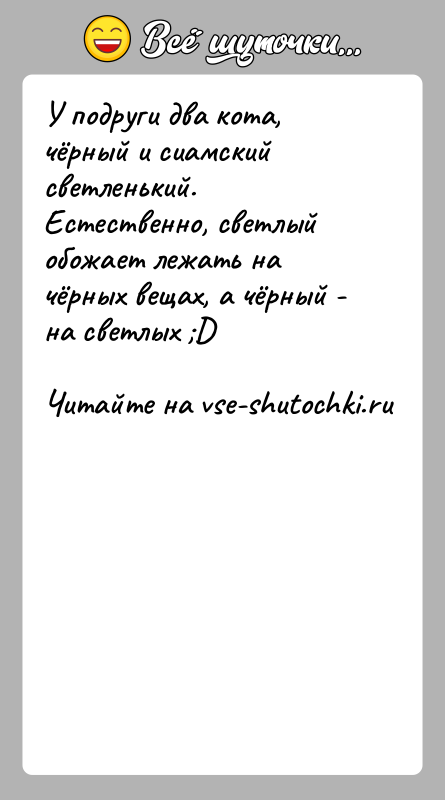 Всё шуточки...
У подруги два кота,
чёрный и сиамский
светленький.
Естественно, светлый
обожает лежать на
чёрных вещах, а чёрный -
на светлых ;D
Читайте на vse-shutochki.ru